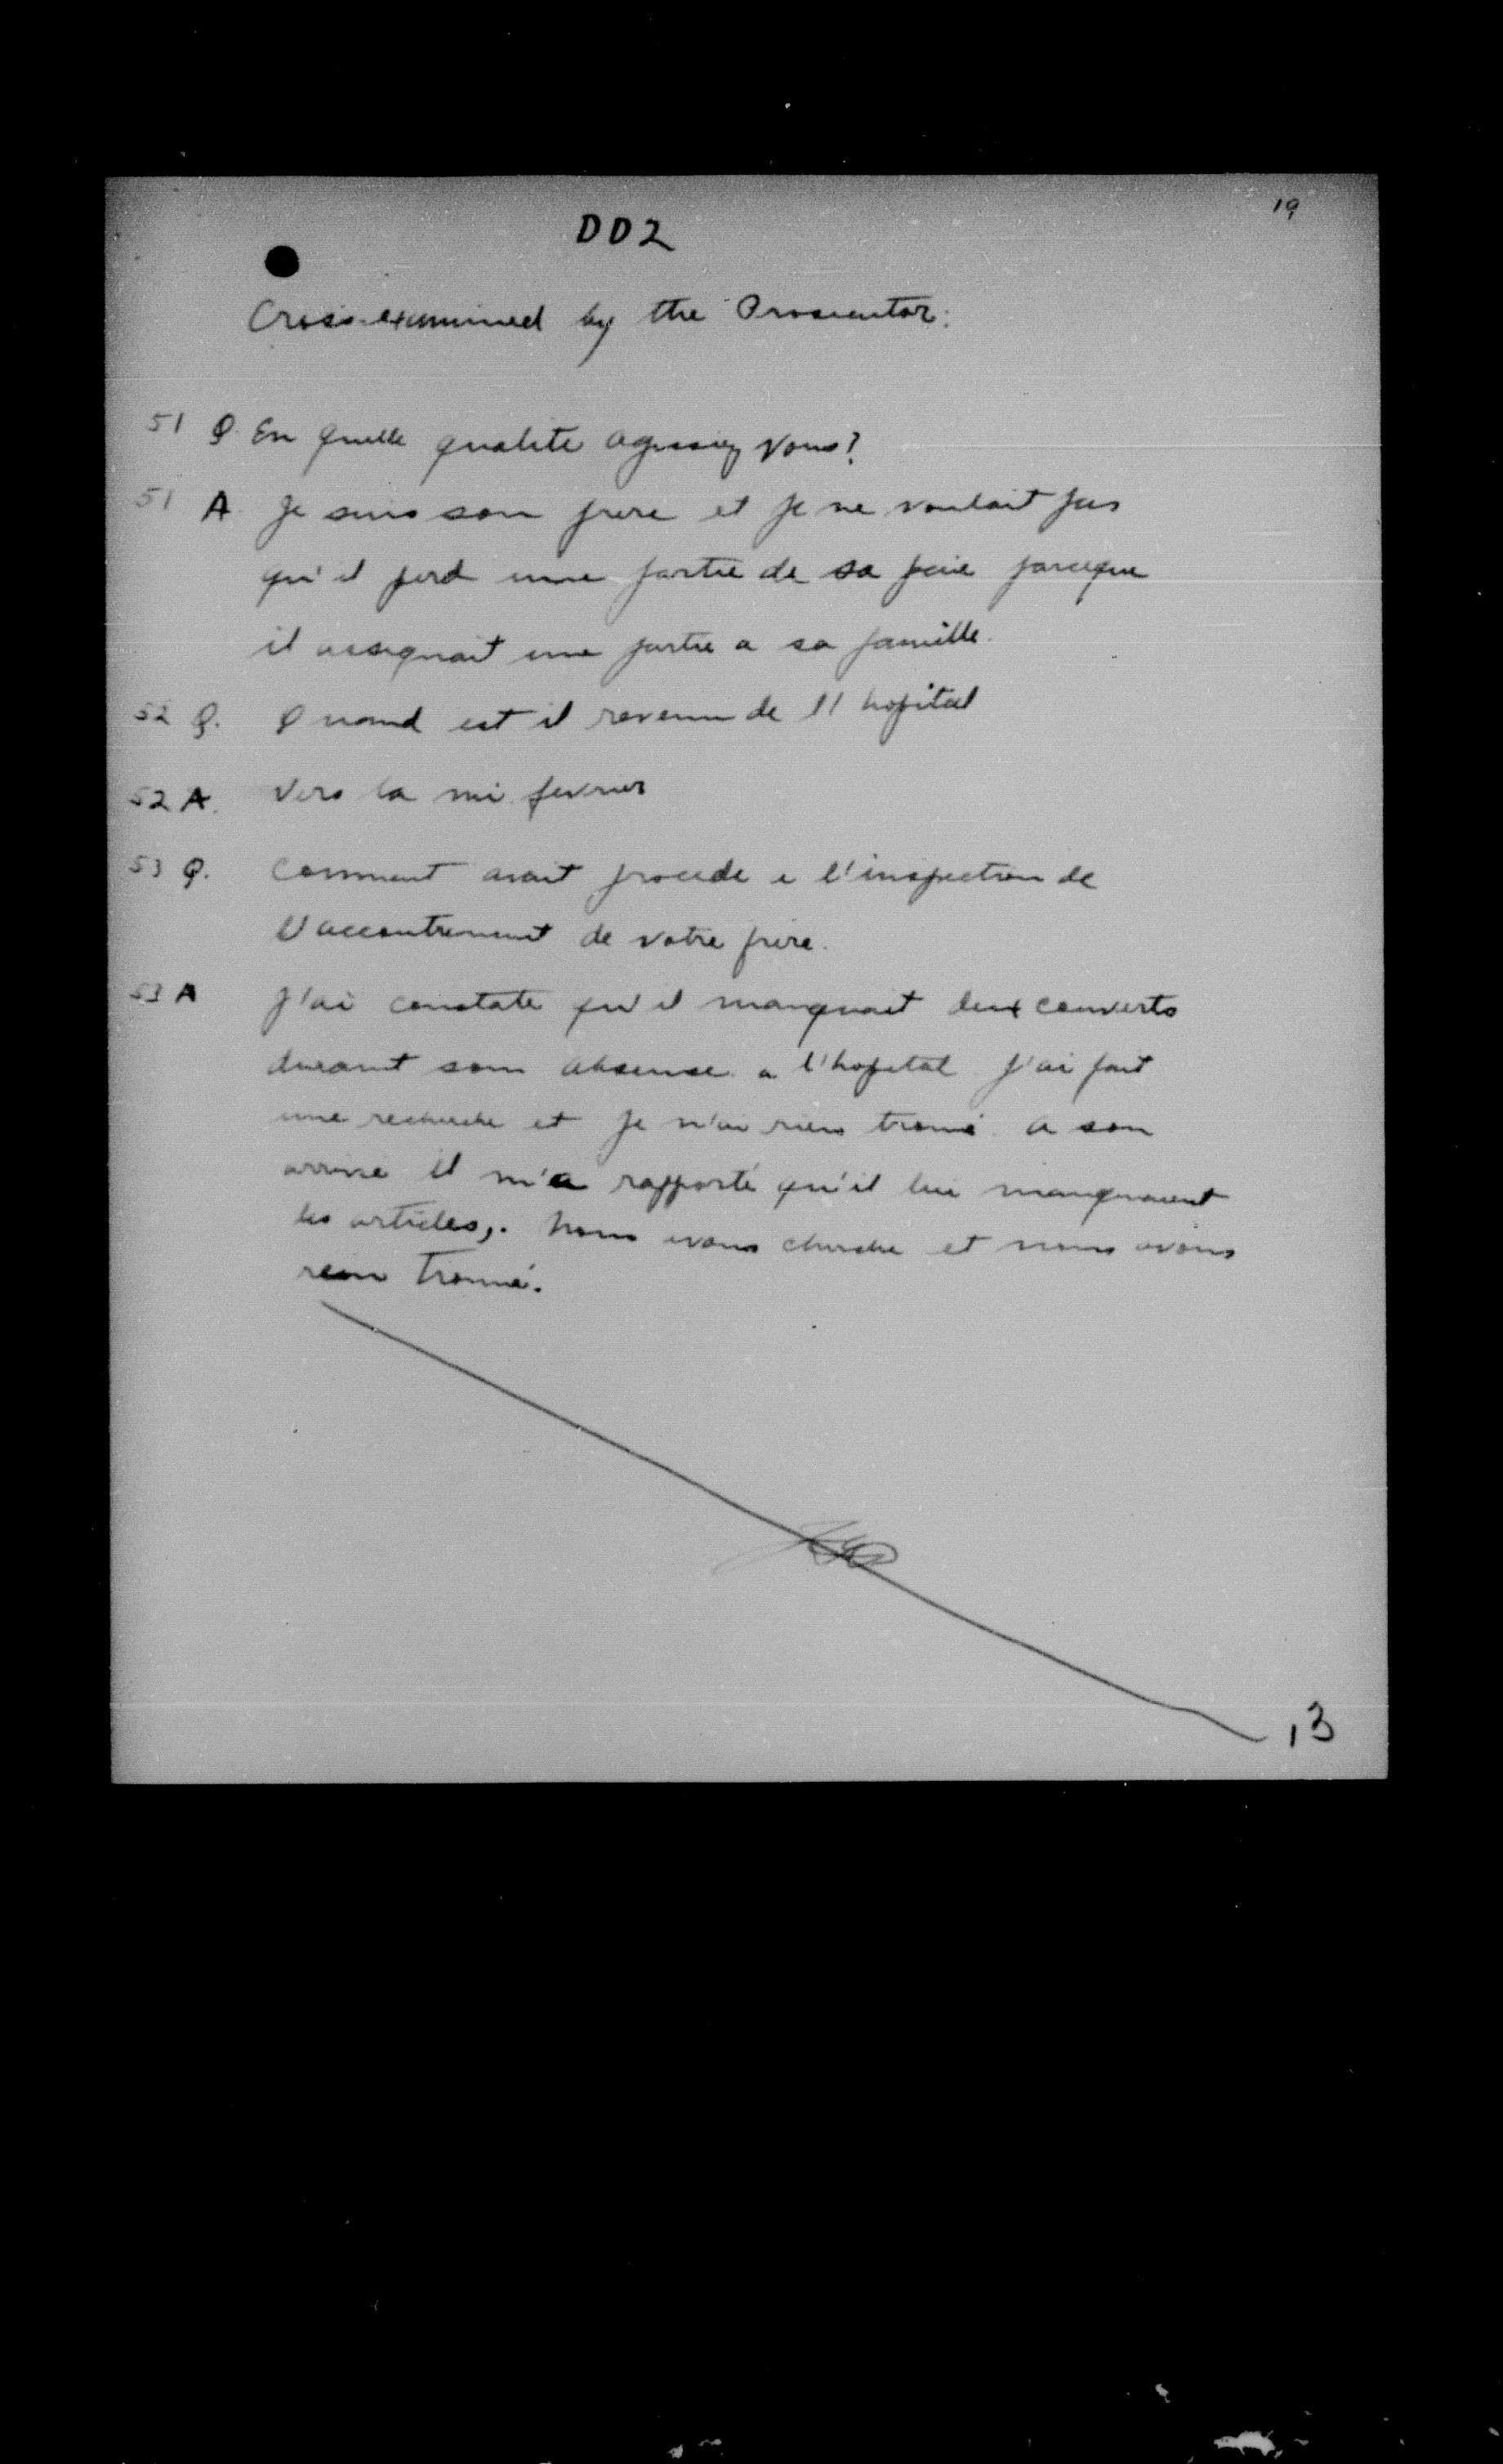 19
DD2
Cross-examined by the Prosecutor:
51 Q. En quelle qualite agissiez vous?
51 A. Je suis son frere et je ne voulait pas
qu'il perd une partie de sa paie parceque
il assignait une partie a sa famille.
52 Q. Quand est il revenu de l'hopital
52 A. Vers la mi fevrier
53 Q. Comment avait procede a l'inspection de
l'accoutrement de votre frere.
53 A J'ai constate qu'il manquait deux couverts
durant son absense a l'hopital J'ai fait
une recherche et je n'ai rien trouvé. a son
arrivé il m'a rapporté qu'il lui manquaient
les articles,. Nous avons cherche et nous avons
rien trouvé.
13